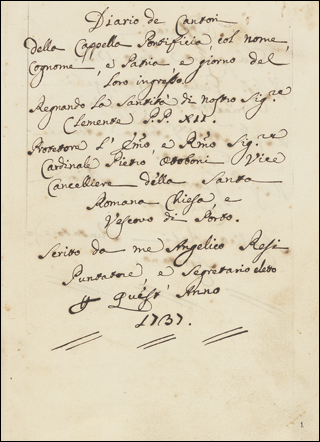 Diario de Cantori
della Cappella Pontificia, col nome,
Cognome, e Patria e giorno del
loro ingresso.
Regnando la Santità di nostro Sig.re
Clemente P.P. XII.
Protettore l'Emo, e Rmo Sig.re
Cardinale Pietro Ottoboni Vice
Cancelliere della Santa
Romana Chiesa, e
Vescovo di Porto.
Scritto da me Angelico Resi
Puntatore, e Segretario eletto
Quest' Anno
1737.
1